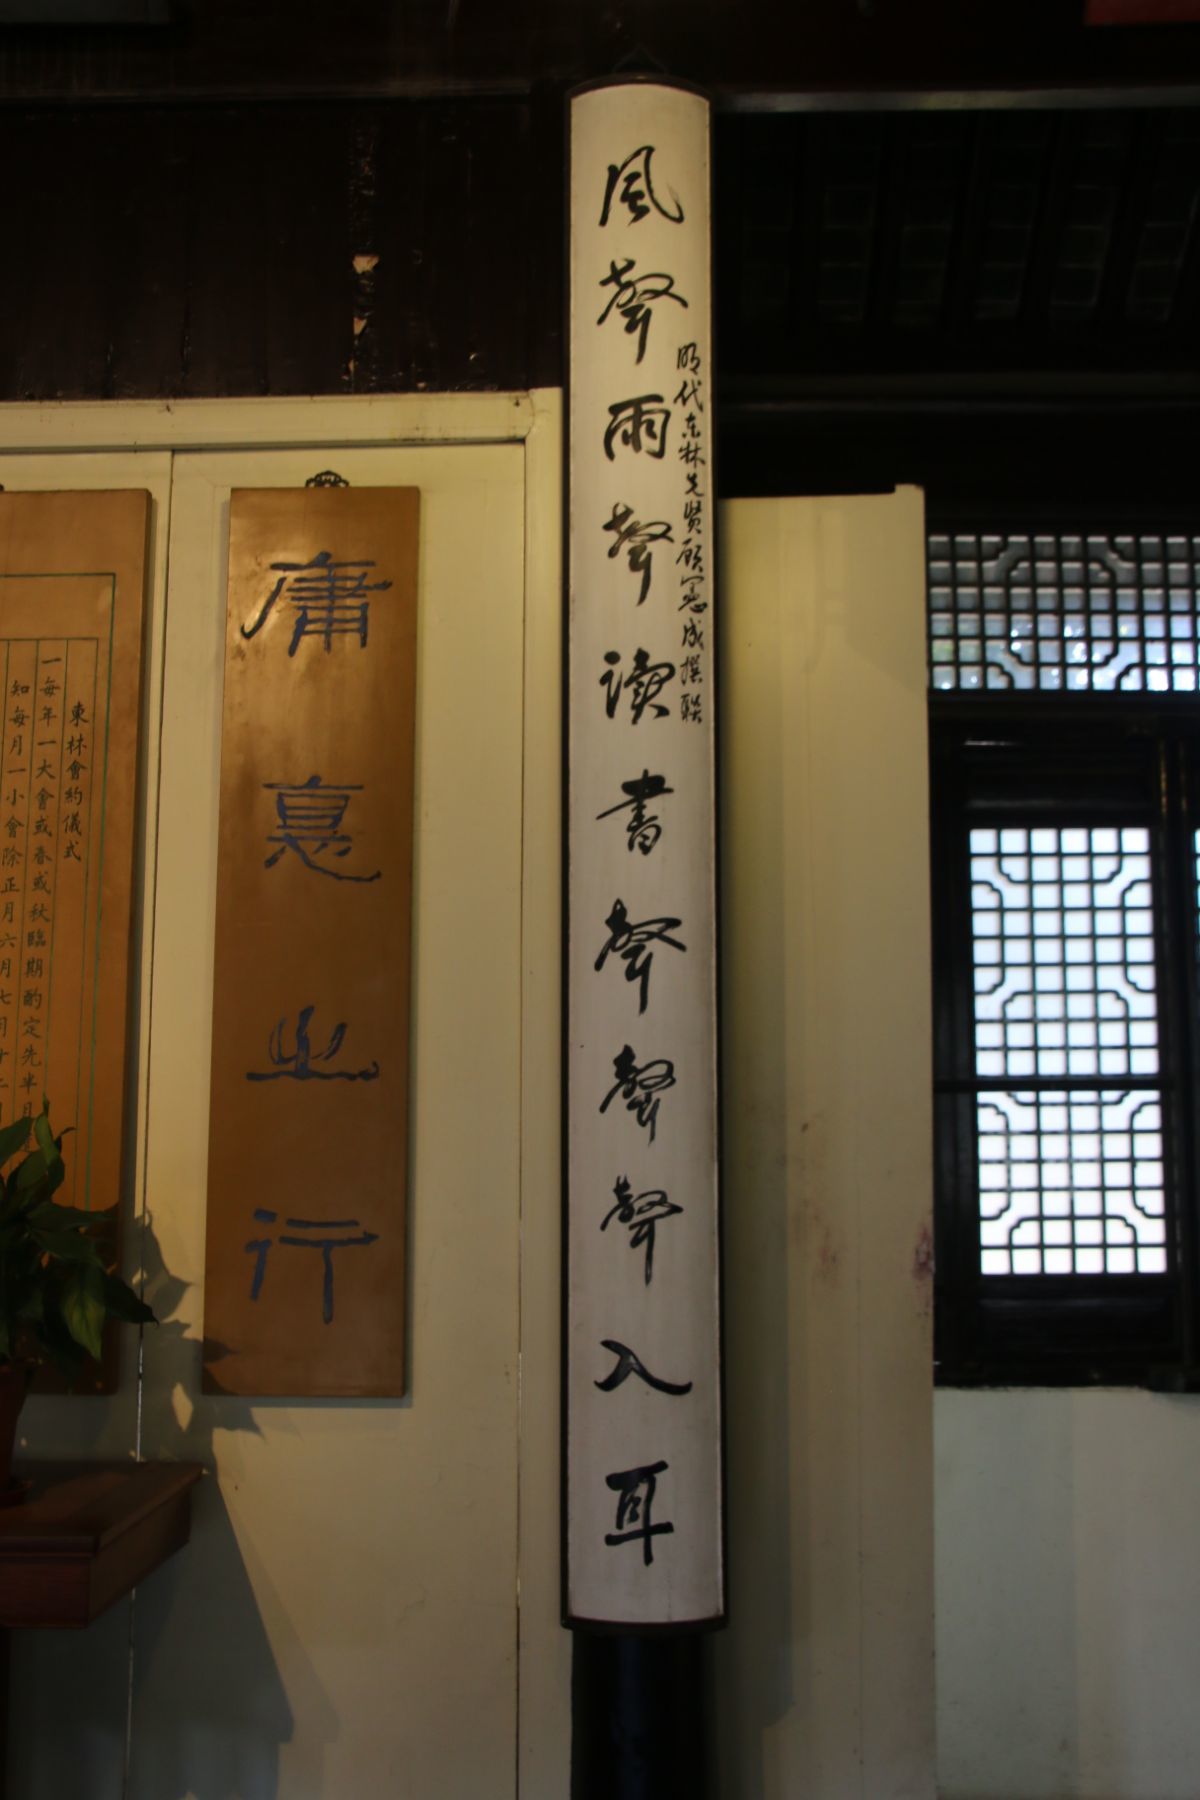 風聲雨聲读書聲聲聲入耳
明代东林先贤顾宪成撰联
庸悳之行
東林會約儀式
一每年一大會或春或秋臨期酌定先半月
知每月一小會除正月六月七月十二月